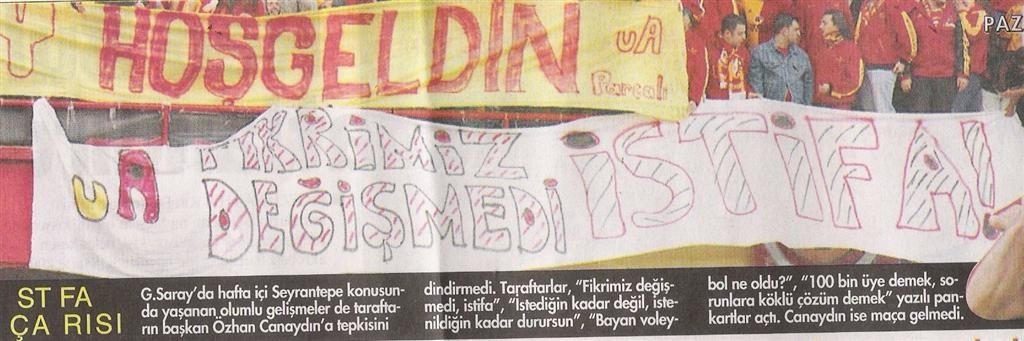 HOŞGELDİN
UA
Parçalı
PAZ
UA
FİKRİMİZ
DEĞİŞMEDİ
İSTİFA!
ST FA
ÇA RISI
G.Saray'da hafta içi Seyrantepe konusun-
da yaşanan olumlu gelişmeler de tarafta-
rın başkan Özhan Canaydın'a tepkisini
dindirmedi. Taraftarlar, "Fikrimiz değiş-
medi, istifa", "İstediğin kadar değil, iste-
nildiğin kadar durursun", "Bayan voley-
bol ne oldu?", "100 bin üye demek, so-
runlara köklü çözüm demek" yazılı pan-
kartlar açtı. Canaydın ise maça gelmedi.